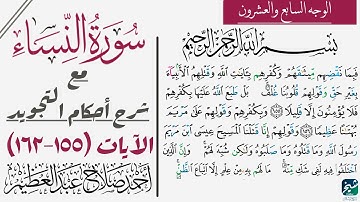 الوجه السابع والعشرون
سورة النساء
مع
شرح أحكام التجويد
الآيات (١٥٥-١٦٢)
أحمد صلاح عبد العظيم
بسم الله الرحمن الرحيم
فَبِمَا نَقْضِهِم مِّيثَٰقَهُمْ وَكُفْرِهِم بِـَٔايَٰتِ ٱللَّهِ وَقَتْلِهِمُ ٱلْأَنۢبِيَآءَ
بِغَيْرِ حَقٍّ وَقَوْلِهِمْ قُلُوبُنَا غُلْفٌۢ ۚ بَلْ طَبَعَ ٱللَّهُ عَلَيْهَا بِكُفْرِهِمْ
فَلَا يُؤْمِنُونَ إِلَّا قَلِيلًا ۝ وَبِكُفْرِهِمْ وَقَوْلِهِمْ عَلَىٰ مَرْيَمَ
بُهْتَٰنًا عَظِيمًا ۝ وَقَوْلِهِمْ إِنَّا قَتَلْنَا ٱلْمَسِيحَ عِيسَى ٱبْنَ مَرْيَمَ
رَسُولَ ٱللَّهِ وَمَا قَتَلُوهُ وَمَا صَلَبُوهُ وَلَٰكِن شُبِّهَ لَهُمْ ۚ وَإِنَّ ٱلَّذِينَ
ٱخْتَلَفُوا۟ فِيهِ لَفِى شَكٍّ مِّنْهُ ۚ مَا لَهُم بِهِۦ مِنْ عِلْمٍ إِلَّا ٱتِّبَاعَ ٱلظَّنِّ ۚ